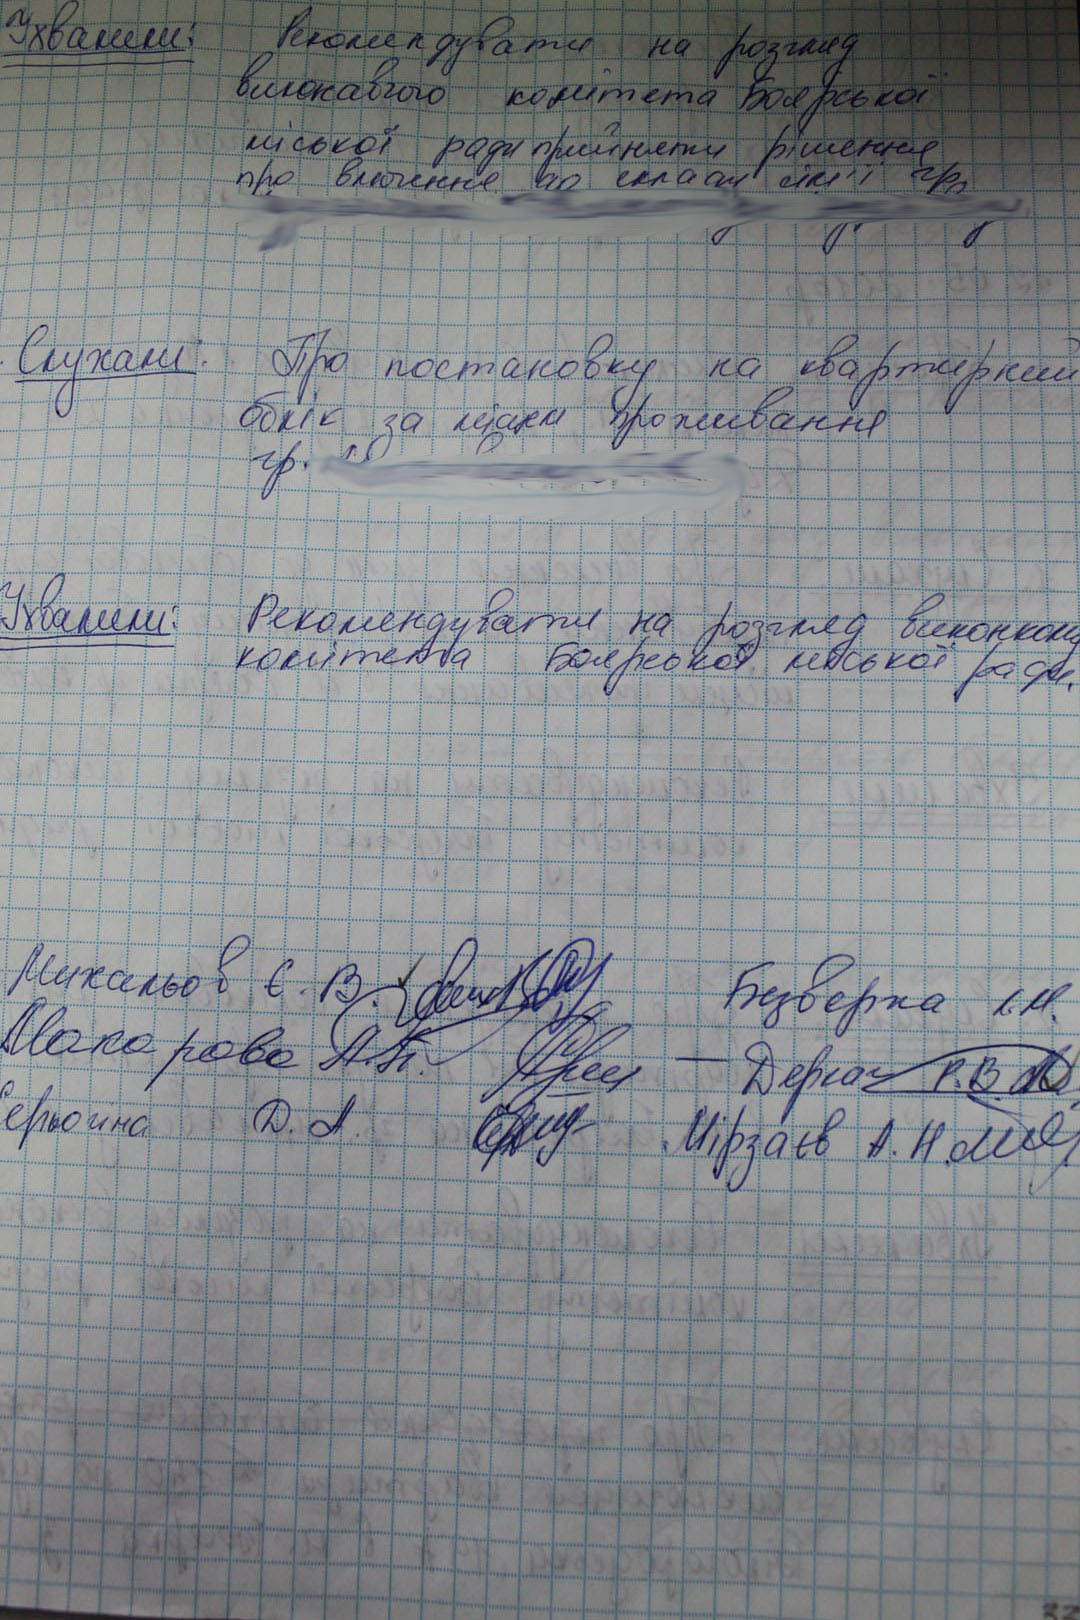 Ухвалили: Рекомендувати на розгляд
виконавчого комітета Боярської
міської ради прийняти рішення
про включення до складу сім'ї гр.
Слухали: Про постановку на квартирний
облік за місцем проживання
гр.
Ухвалили: Рекомендувати на розгляд виконкому
комітета Боярської міської ради.
Михальов Є. В. Безверха І.М.
Макарова А.П. Деркач Р.В.
Серьогіна Д. А. Мірзаєв А. Н.